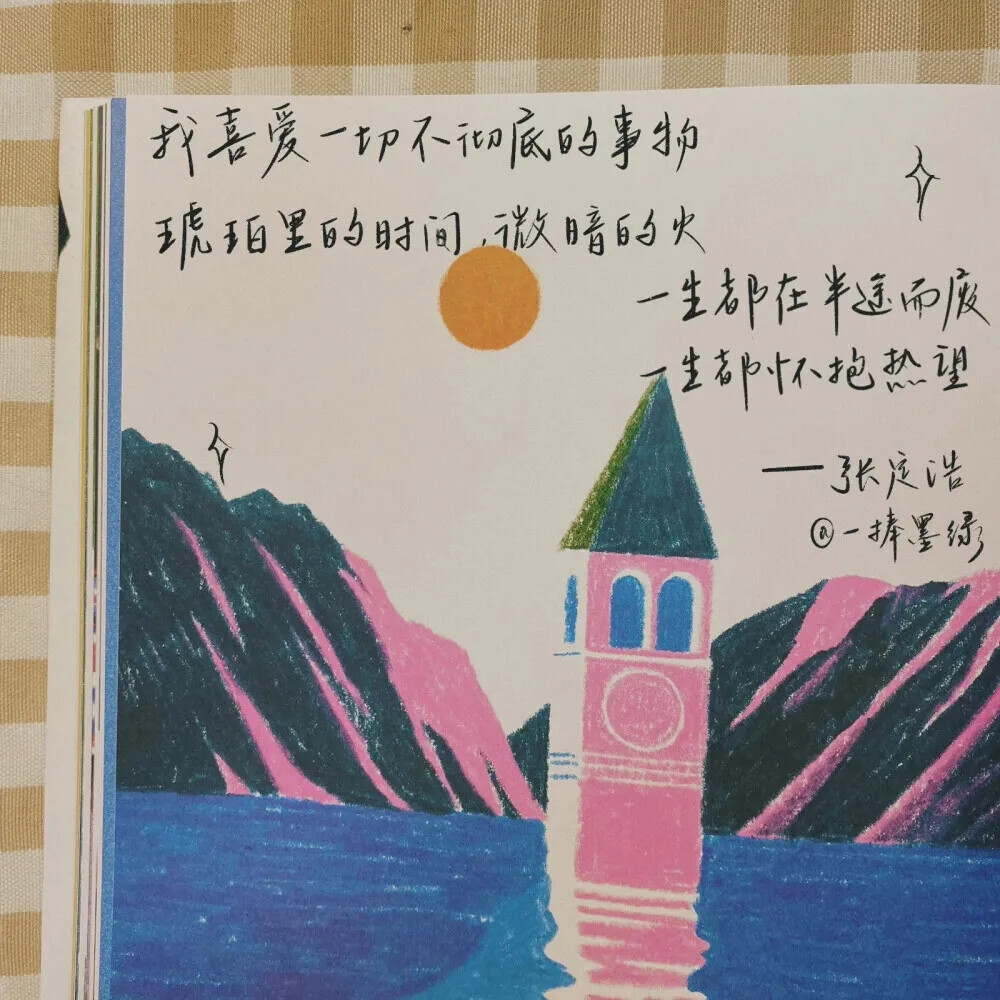 我喜爱一切不彻底的事物
琥珀里的时间,微暗的火
一生都在半途而废
一生都怀抱热望
——张定浩
@一捧墨绿